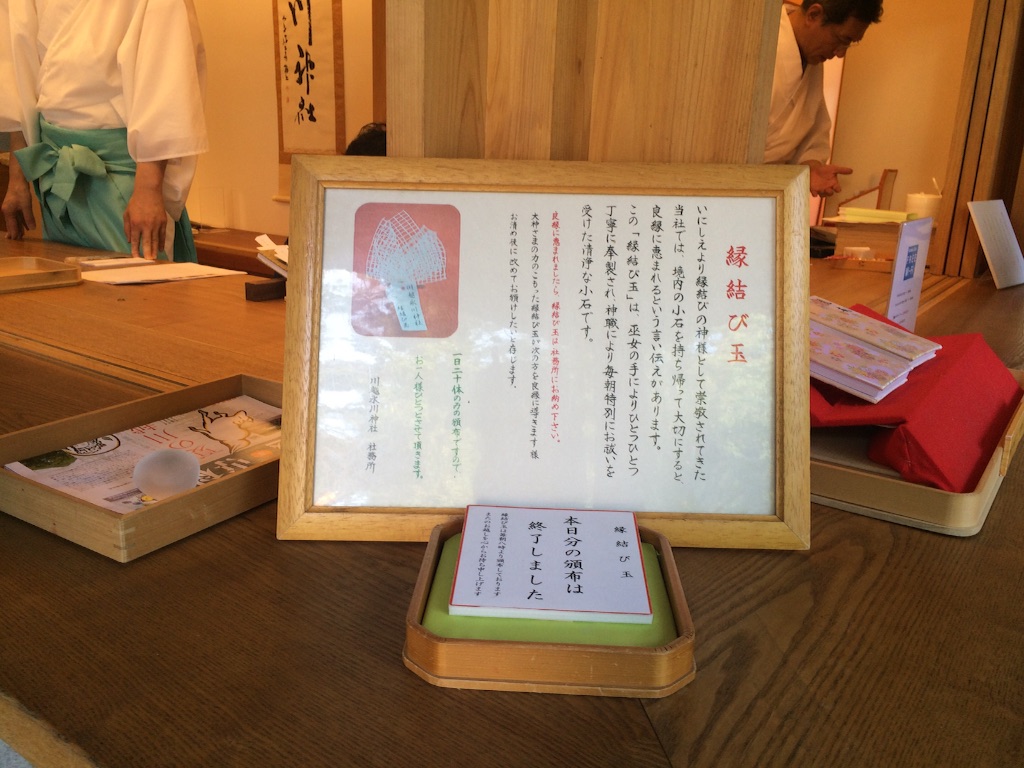 縁結び玉
いにしえより縁結びの神様として崇敬されてきた
当社では、境内の小石を持ち帰って大切にすると、
良縁に恵まれるという言い伝えがあります。
この「縁結び玉」は、巫女の手によりひとつひとつ
丁寧に奉製され、神職により毎朝特別にお祓いを
受けた清浄な小石です。
良縁に恵まれましたら、縁結び玉は社務所にお納め下さい。
大神さまの力のこもった縁結び玉が次の方を良縁に導きます様
お清め後に改めてお頒けしたいと存じます。
一日二十体の力の頒布ですので、
お一人様ひとつとさせて頂きます。
川越氷川神社 社務所
川越氷川神社
縁結び玉
縁結び玉
本日分の頒布は
終了しました
縁結び玉は毎朝八時より頒布しております
またのお越しを心からお待ち申し上げます
川神社